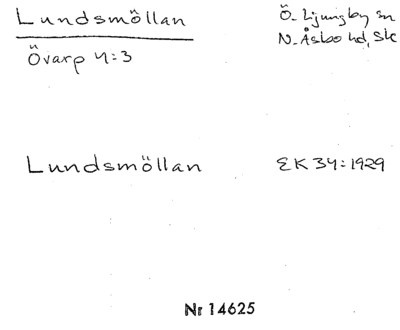 Lundsmöllan
Ö. Ljungby sn
N. Åsbo hd, Sk
Övarp 4:3
Lundsmöllan
EK 34:1929
Nr 14625